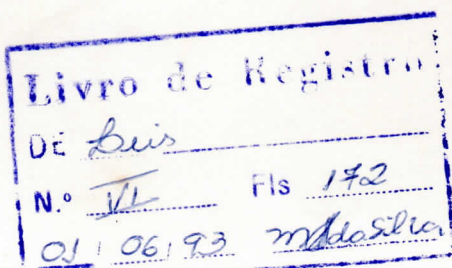 Livro de Registro
DE Leis
N.º VI Fls 172
01 06 93